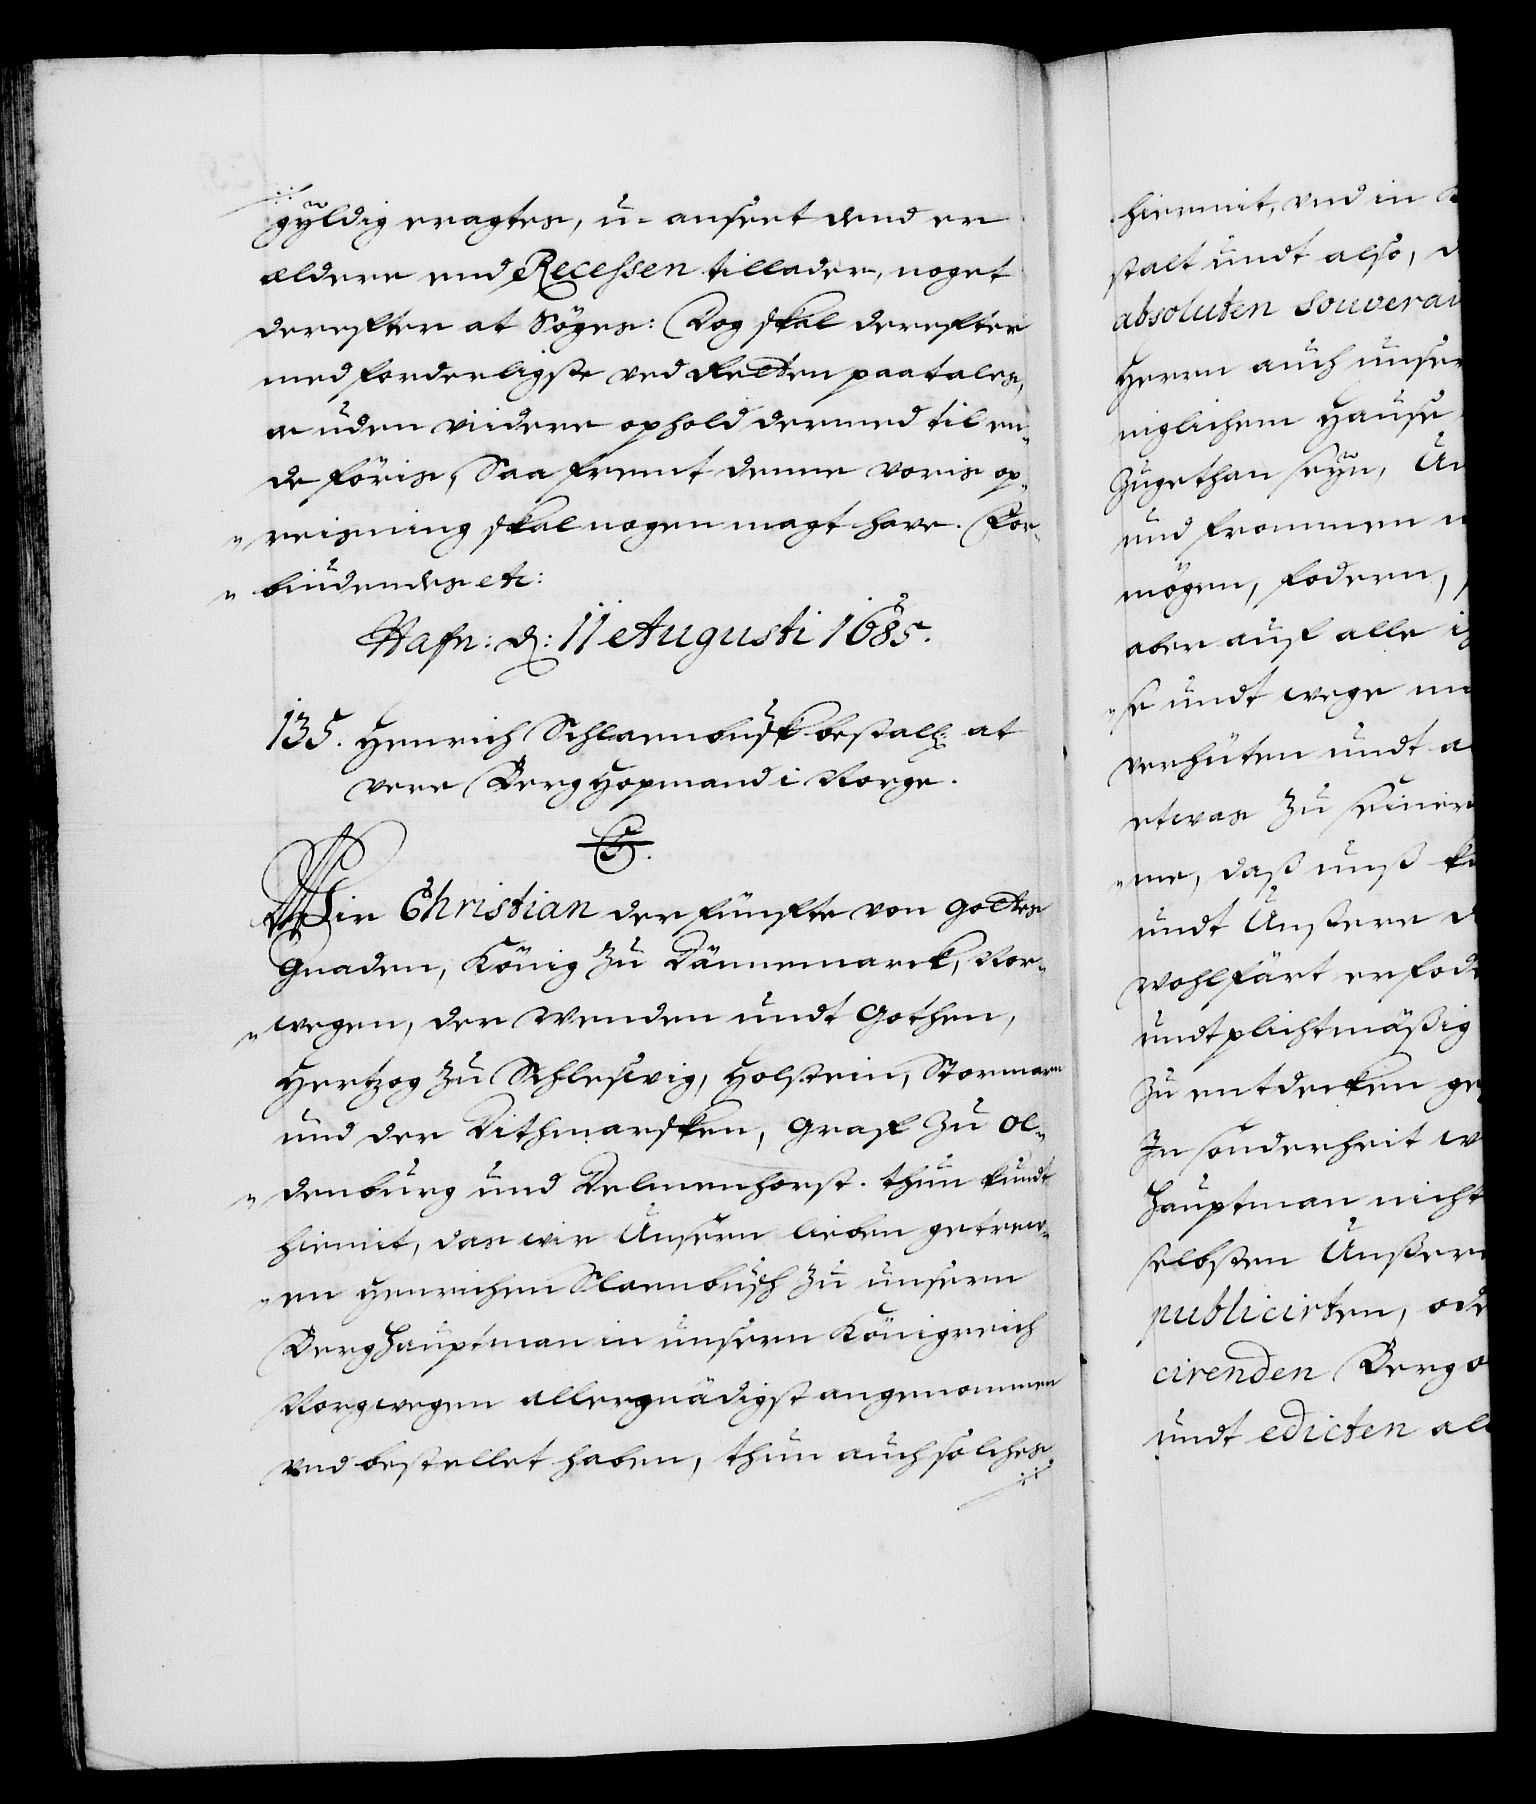 gyldig eragtes, u-anseet dend er
ældere end Recessen tillader, noget
derefter at Söges: Dog skal derefter
med forderligste ved Retten paatales,
oc uden viidere ophold dermed til en-
de föris, Saa fremt denne voris op-
reisning skal nogen magt have. For-
biudendes etc:
Hafn: d: 11 Augusti 1685.
135. Henrich Schlanbusk bestall: at
vere Berg Hopmand i Norge.
C5.
Wir Christian der fünfte von Gottes
Gnaden, König zu Dännemarck, Nor-
wegen, der Wenden undt Gothen,
Hertzog zu Schleswig, Holstein, Stormarn
und der Dithmarsken, Graf zu Ol-
denburg und Delmenhorst. thun kundt
hiemit, das wir Unsern lieben getrew-
en Henrichen Slanbusch zu unsern
Berghauptman in unsern Königreich
Norgwegen allergnädigst angenommen
und bestellet haben, thun auch solches
hiermit, und in
stalt undt also, d
absoluten Souverai
Herrn auch unser
niglichem Hause
Zugethan seyn, Un
und frommen
mögen, fodern,
aber auf alle
se undt wege
verhüten undt a
etwas zu seiner
me, daß unß
undt Unßere d
wohlfärt erfod
undt plichtmäßig
zu entdecken ge
In sonderheit w
hauptman nicht
selbsten Unßere
publicirten, ode
cirenden Bergo
undt edicten all